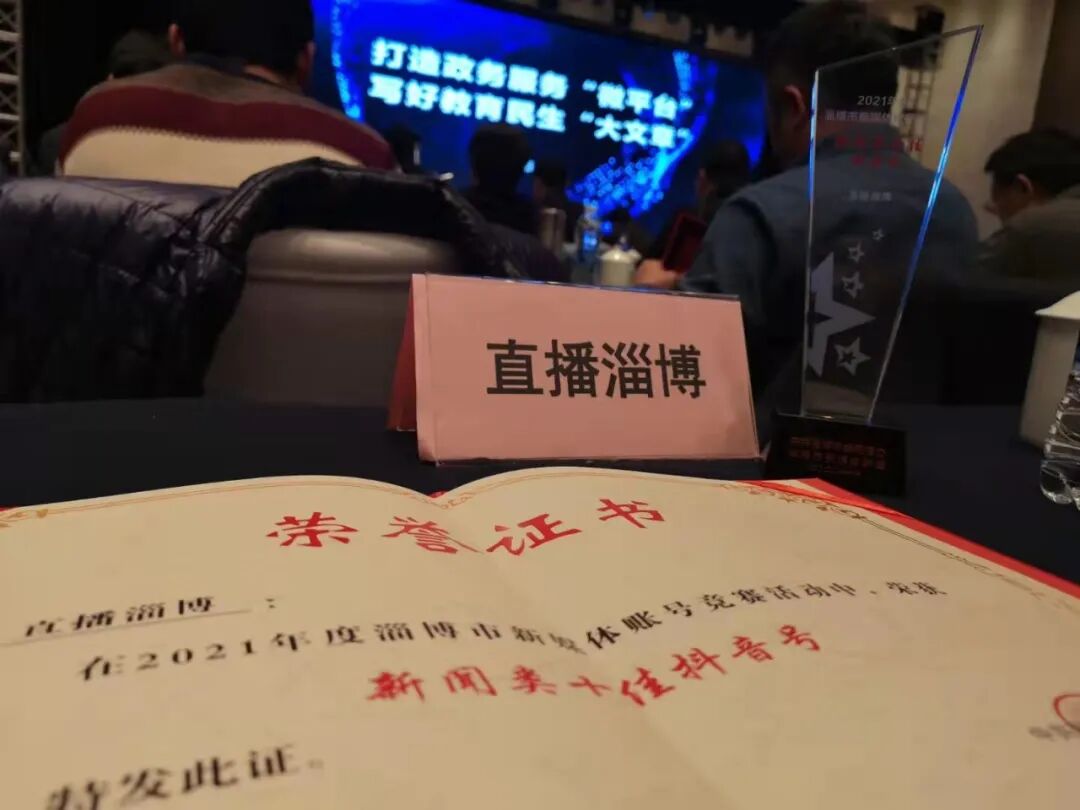 打造政务服务“微平台”
写好教育民生“大文章”
2021年
直播淄博
荣誉证书
直播淄博：
在2021年度淄博市新媒体账号竞赛活动中，荣获
新闻类十佳抖音号
特发此证。